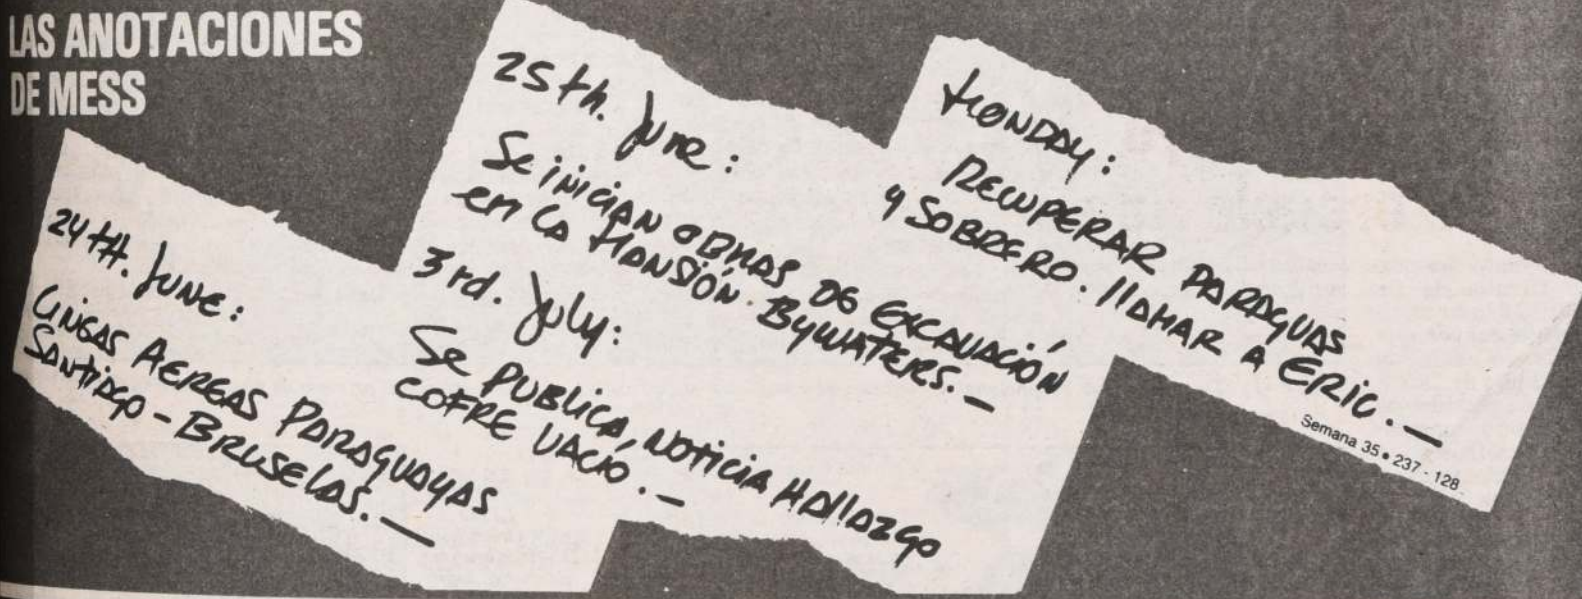 LAS ANOTACIONES
DE MESS
24TH. JUNE:
LINEAS AEREAS PARAGUAYAS
SANTIAGO - BRUSELAS. —
25th. June:
Se iNiCiAN OBRAS DE EXCAVACIÓN
en LA MANSIÓN BYWATERS. —
3rd. July:
Se PUBLICA, NOTICIA HALLAZGO
COFRE VACIO. —
MONDAY:
RECUPERAR PARAGUAS
Y SOBRERO. llAMAR A ERIC. —
Semana 35 • 237 - 128